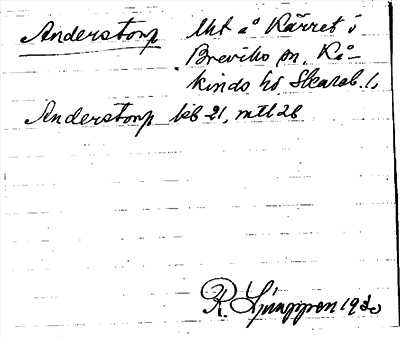 Anderstorp lht å Kärret i
Breviks sn. Kå-
kinds hd Skarab. l,
Anderstorp kb 21, mtl 26
R. Ljunggren 1930